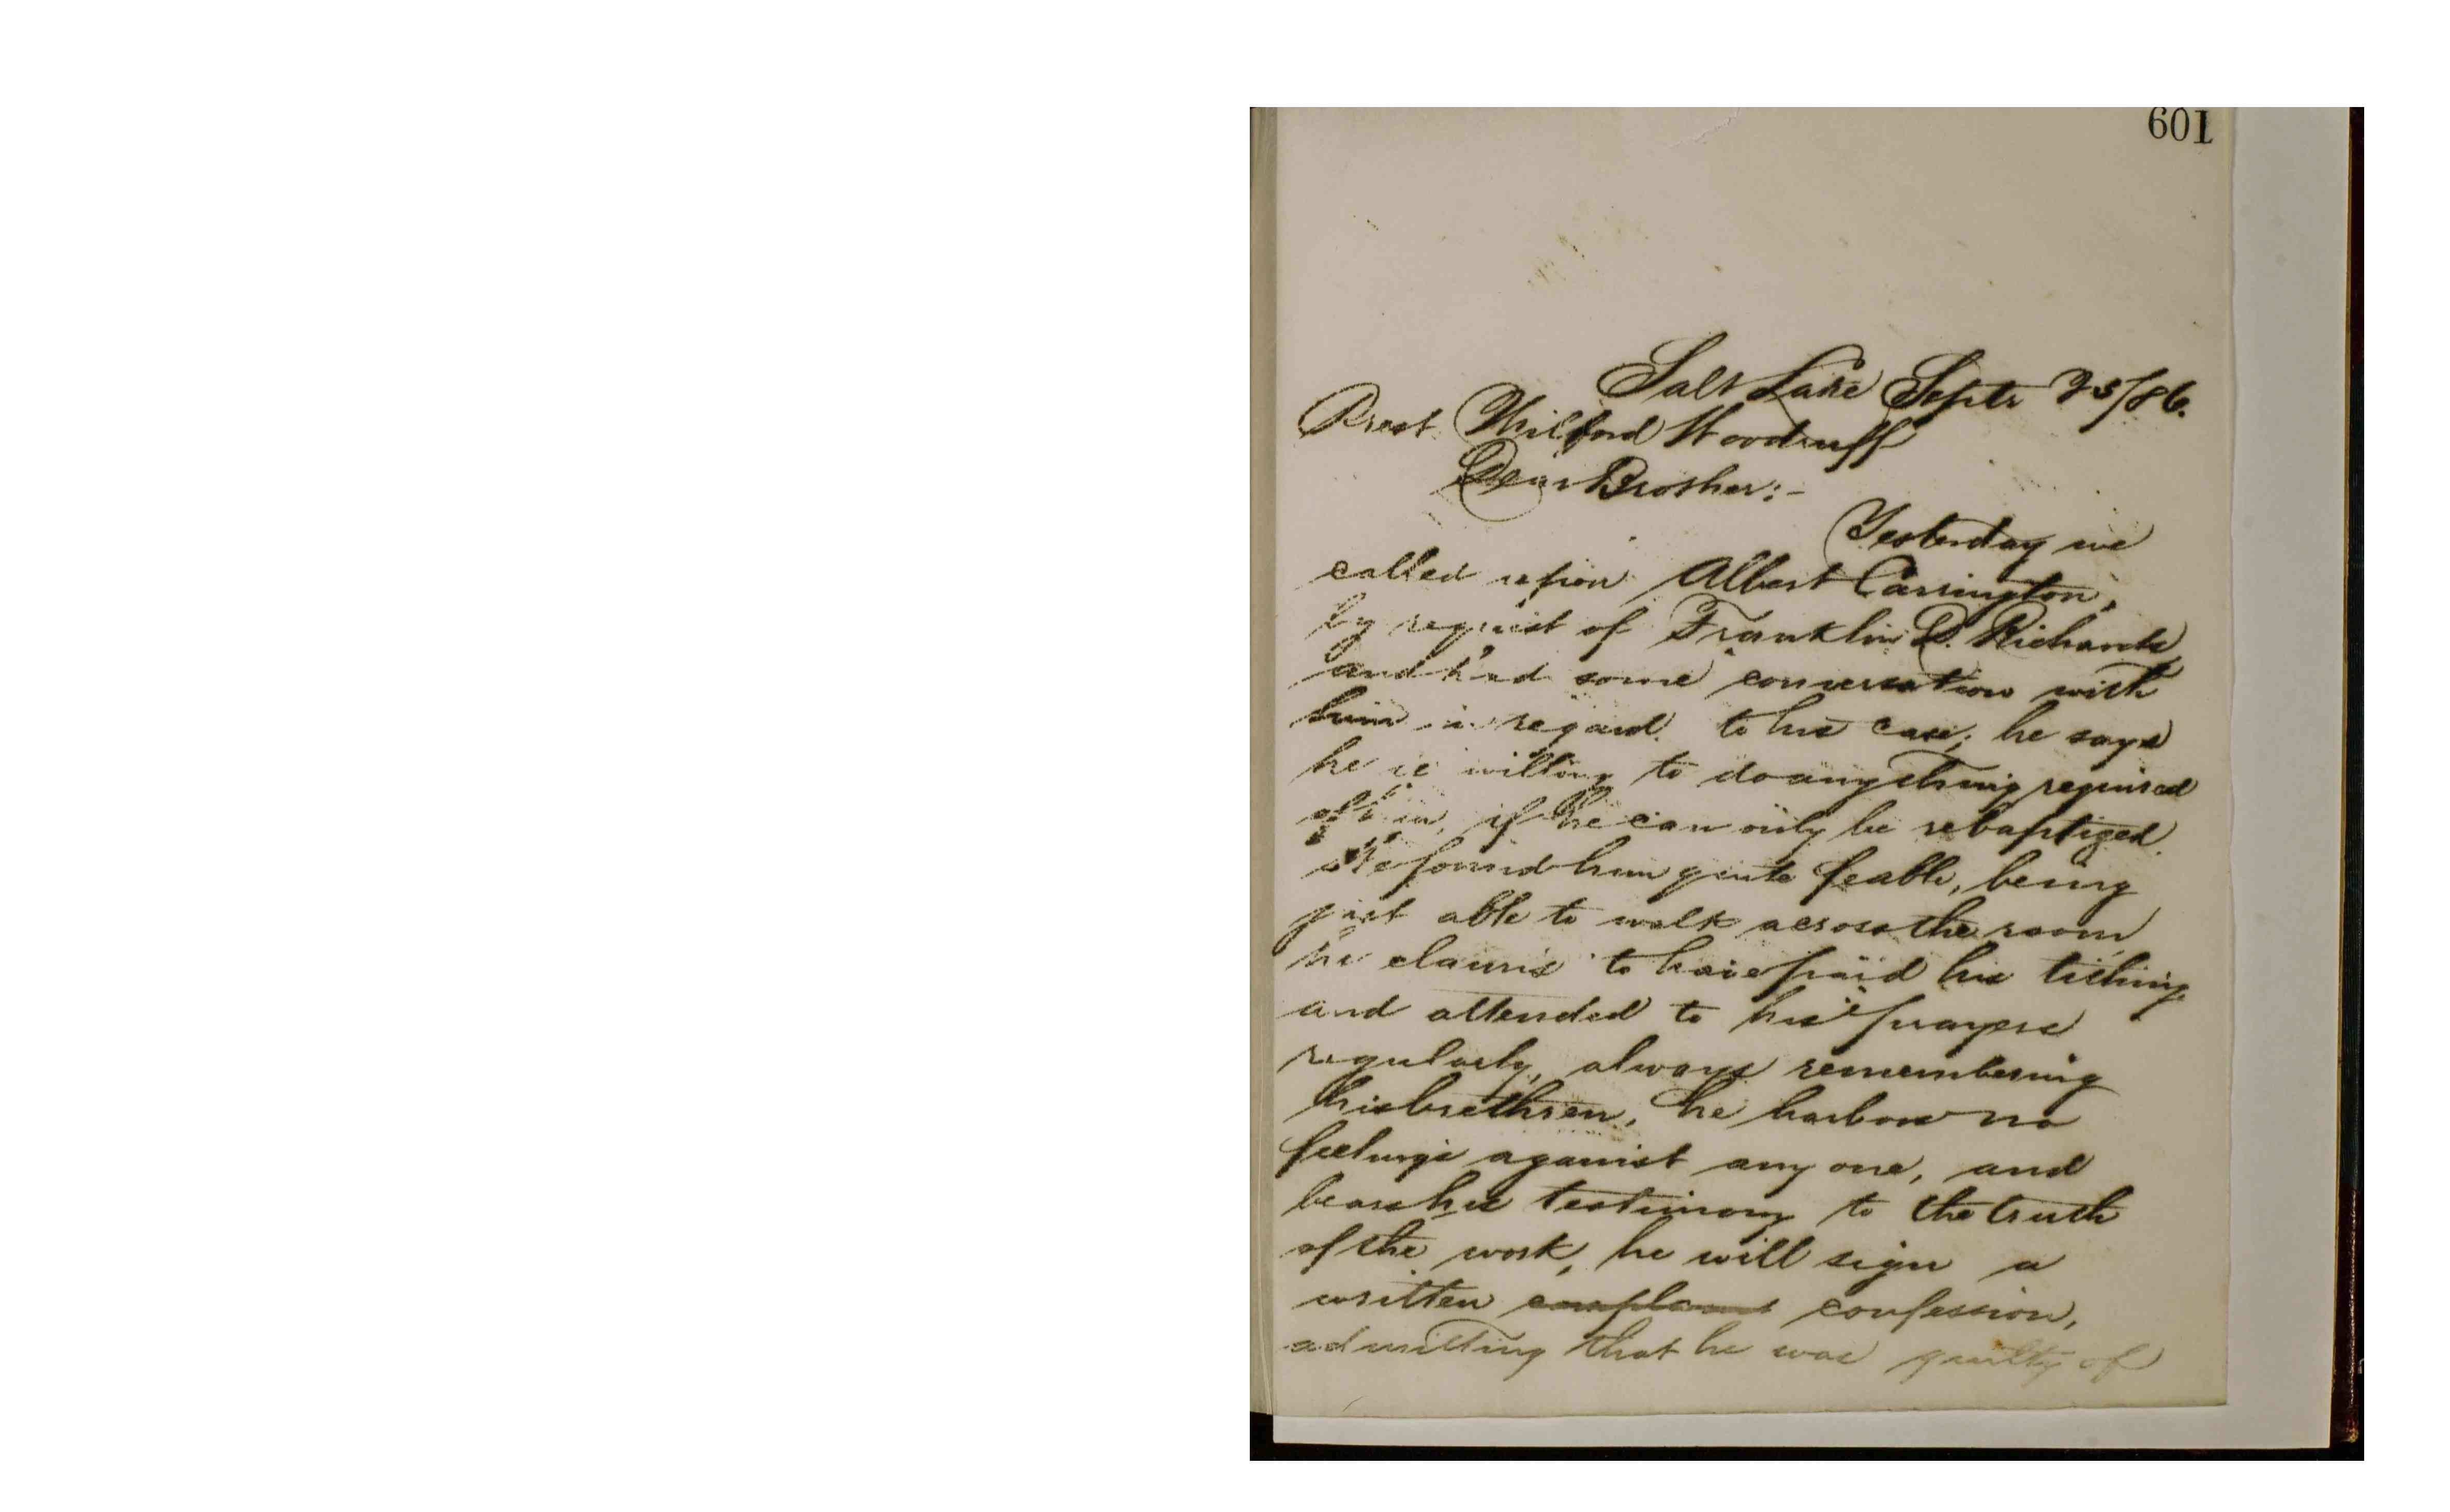 601
Salt Lake Septr 23/86.
Prest. Wilford Woodruff
Dear Brother:-
Yesterday we
called upon Albert Carrington,
by request of Franklin D. Richards
and had some conversation with
him in regard to his case; he says
he is willing to do anything required
of him, if he can only be rebaptized.
We found him quite feable, being
just able to walk across the room
he claims to have paid his tithing
and attended to his prayers
regularly, always remembering
his brethren, he harbors no
feelings against any one, and
bears his testimony to the truth
of the work, he will sign a
written complaint confession,
admitting that he was guilty of